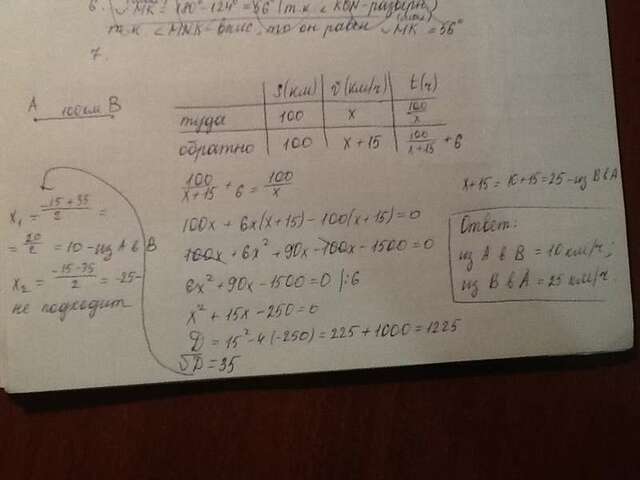 6. ◡MK = 180° - 124° = 56° (т.к. ∠KON - разверн.)
т.к. ∠MNK - впис., то он равен ◡MK = 56°
7.
A 100км B
S(км) v(км/ч) t(ч)
туда 100 x 100/x
обратно 100 x+15 100/(x+15) + 6
100/(x+15) + 6 = 100/x
100x + 6x(x+15) - 100(x+15) = 0
100x + 6x² + 90x - 100x - 1500 = 0
6x² + 90x - 1500 = 0 |:6
x² + 15x - 250 = 0
D = 15² - 4(-250) = 225 + 1000 = 1225
√D = 35
x₁ = (-15 + 35)/2 =
= 20/2 = 10 - из A в B
x₂ = (-15 - 35)/2 = -25 -
не подходит
x+15 = 10+15 = 25 - из B в A
Ответ:
из A в B = 10 км/ч;
из B в A = 25 км/ч.